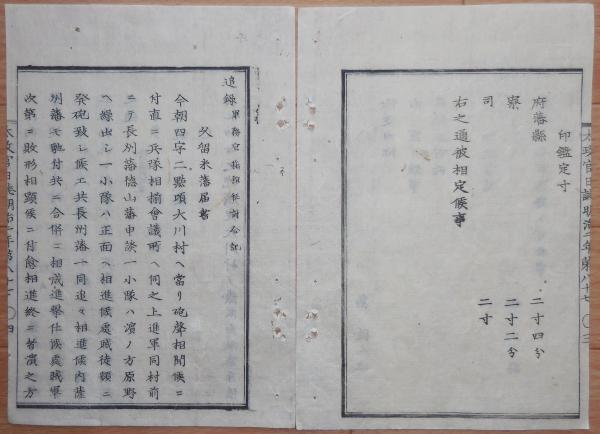 太政官日誌明治二年第八十七 〇三
印鑑定寸
府藩縣 二寸四分
寮 二寸二分
司 二寸
右之通被相定候事
追録
久留米藩届書
今朝四字二點項大川村ヘ當リ砲聲相聞候ニ
付直ニ兵隊相揃會議所ヘ伺之上進軍同村前
ニテ長州藩徳山藩申談一小隊ハ濱ノ方原野
ヘ繰出シ一小隊ハ正面ヘ相進候處賊徒頻ニ
發砲致シ候エ共長州藩一同追々相進候内薩
州藩モ馳付共ニ合併ニ相成進撃仕候處賊軍
次第ニ敗形相顕候ニ付愈相進終ニ者濱之方
太政官日誌明治二年第八十七 〇四